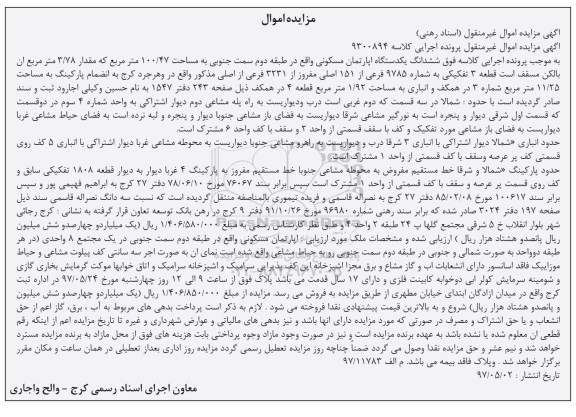 مزایده اموال
اگهی مزایده اموال غیرمنقول (اسناد رهنی)
اگهی مزایده اموال غیرمنقول پرونده اجرایی کلاسه ۹۳۰۰۸۹۴
به موجب پرونده اجرایی کلاسه فوق ششدانگ یکدستگاه اپارتمان مسکونی واقع در طبقه دوم سمت جنوبی به مساحت ۱۰۰/۴۷ متر مربع که مقدار ۳/۷۸ متر مربع ان
بالکن مسقف است قطعه ۳ تفکیکی به شماره ۹۷۸۵ فرعی از ۱۵۱ اصلی مفروز از ۳۲۳۱ فرعی از اصلی مذکور واقع در وهرجرد کرج به انضمام پارکینگ به مساحت
۱۱/۲۵ متر مربع شماره ۳ در همکف و انباری به مساحت ۱/۹۲ متر مربع قطعه ۴ در همکف ذیل صفحه ۲۴۳ دفتر ۱۵۴۷ به نام حسین وکیلی اجارود ثبت و سند
صادر گردیده است با حدود : شمالا در سه قسمت که دوم غربی است درب ودیواریست به راه پله مشاعی دوم دیوار اشتراکی به واحد شماره ۴ سوم در دوقسمت
که قسمت اول شرقی دیوار و پنجره است به نورگیر مشاعی شرقا دیواریست به فضای باز مشاعی جنوبا دیوار و پنجره و لبه نرده است به فضای حیاط مشاعی غربا
دیواریست به فضای باز مشاعی مورد تفکیک و کف با سقف قسمتی از واحد ۲ و سقف با کف واحد ۶ مشترک است.
حدود انباری #شمالا دیوار اشتراکی با انباری ۳ شرقا درب و دیواریست به راهرو مشاعی جنوبا دیواریست به محوطه مشاعی غربا دیوار اشتراکی با انباری ۵ کف روی
قسمتی کف پر عرصه وسقف با کف قسمتی از واحد ۱ مشترک است
حدود پارکینگ #شمالا و شرقا خط مستقیم مفروض به محوطه مشاعی جنوبا خط مستقیم مفروز به پارکینگ ۴ غربا دیوار به دیوار قطعه ۱۸۰۸ تفکیکی سابق و
کف روی قسمت پر عرصه و سقف با کف قسمتی از واحد ۱ مشترک است سپس برابر سند ۷۶۰۶۷ مورخ ۷۸/۰۶/۱۰ دفتر ۲۷ کرج به ابراهیم فهیمی پور و سپس
برابر سند ۱۰۰۶۱۷ مورخ ۸۵/۰۲/۰۸ دفتر ۲۷ کرج به نصراله قاسمی و فریده تیموری بالمناصفه منتقل گردیده است که نسبت سه دانگ نصراله قاسمی سند ذیل
صفحه ۱۹۷ دفتر ۳۰۲۴ صادر شده که برابر سند رهنی شماره ۹۶۹۸۰ مورخ ۹۱/۱۰/۲۶ دفتر ۹ کرج در رهن بانک توسعه تعاون قرار گرفته به نشانی : کرج رجائی
شهر بلوار انقلاب خ ۵ شرقی مجتمع گلها پ ۲۴ طبقه ۲ واحد ۴ و طبق نظر کارشناس رسمی به مبلغ ۱/۴۰۶/۵۸۰/۰۰۰ ریال (یک میلیاردو چهارصدو شش میلیون
ریال پانصدو هشتاد هزار ریال ) ارزیابی شده و مشخصات ملک مورد ارزیابی: اپارتمان مسکونی واقع در طبقه دوم سمت جنوبی در یک مجتمع ۸ واحدی (در هر
طبقه دوواحد به صورت شمالی و جنوبی در طبقه دوم سمت جنوبی رو به حیاط مشاعی واقع شده است نمای ان به صورت اجر سه سانتی کف پیلوت مشاعی و حیاط
موزاییک فاقد اسانسور دارای انشعابات اب و گاز مشاع و برق مجزا اشپزخانه اپن کف پذیرایی سرامیک و اشپزخانه سرامیک و اتاق خوابها موکت گرمایش بخاری گازی
و شومینه سرمایش کولر ابی دوخوابه کابینت فلزی و دارای ۱۷ سال قدمت می باشد پلاک فوق از ساعت ۹ الی ۱۲ روز چهارشنبه مورخ ۹۷/۰۵/۲۴ در اداره ثبت
کرج واقع در میدان ازادگان ابتدای خیابان مطهری از طریق مزایده به فروش می رسد. مزایده از مبلغ ۱/۴۰۶/۸۵۰/۰۰۰ ریال (یک میلیاردو چهارصدو شش میلیون
و پانصدو هشتاد هزار ریال) شروع و به بالاترین قیمت پیشنهادی نقدا فروخته می شود . لازم به ذکر است پرداخت بدهی های مربوط به آب ، برق، گاز اعم از حق
انشعاب و یا حق اشتراک و مصرف در صورتی که مورد مزایده دارای انها باشد و نیز بدهی های مالیاتی و عوارض شهرداری و غیره تا تاریخ مزایده اعم از اینکه رقم
قطعی ان معلوم شده یا نشده باشد به عهده برنده مزایده است و نیز در صورت وجود مازاد وجوه پرداختی بابت هزینه های فوق از محل مازاد به برنده مزایده مسترد
خواهد شد و نیم عشر و حق مزایده نقدا وصول می گردد ضمناً چنانچه روز مزایده تعطیل رسمی گردد مزایده روز اداری بعداز تعطیلی در همان ساعت و مکان مقرر
برگزار خواهد شد . وپلاک فاقد بیمه می باشد. م الف ۹۷/۱۱۷۸۳
تاریخ انتشار : ۹۷/۰۵/۰۲
معاون اجرای اسناد رسمی کرج - والح واجاری